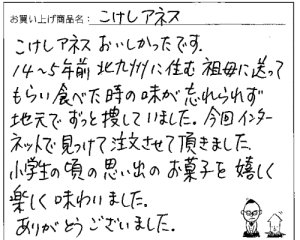 お買い上げ商品名： こけしアネス
こけしアネス おいしかったです.
14～5年前 北九州に住む 祖母に送って
もらい 食べた 時の味が 忘れられず
地元で ずっと捜していました。今回 インター
ネットで 見つけて 注文させて 頂きました.
小学生の頃の思い出の お菓子を 嬉しく
楽しく 味わいました。
ありがとうございました。